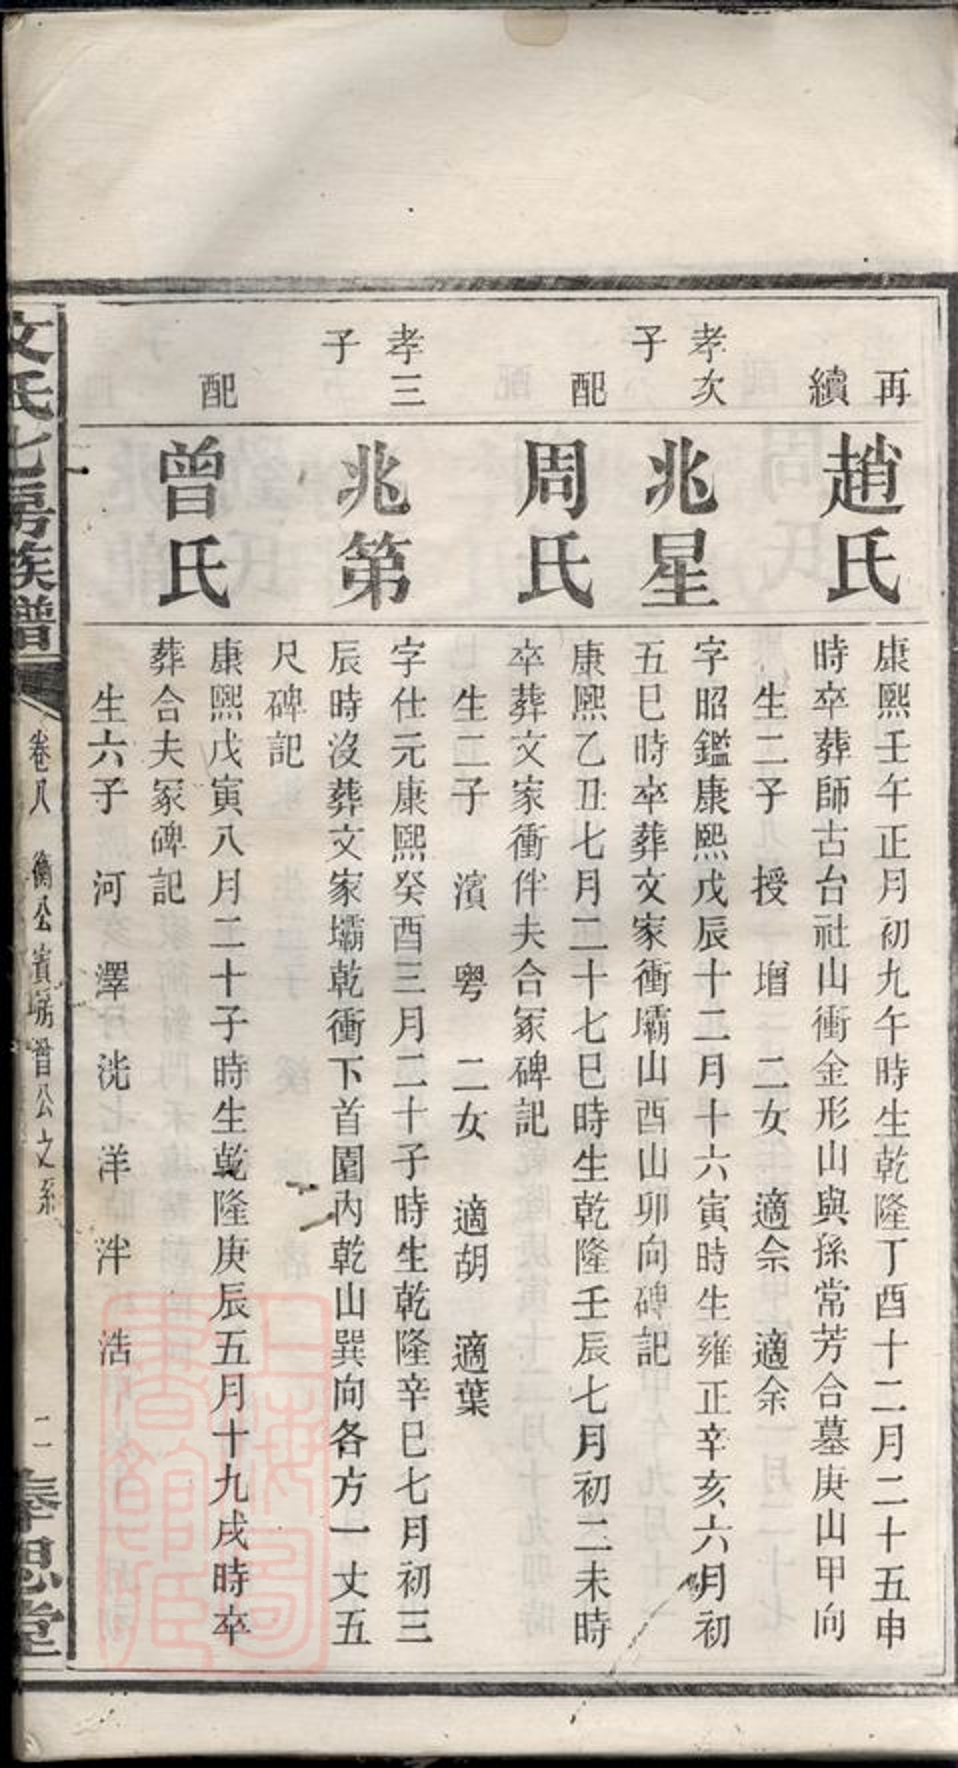 再續
趙氏
康熙壬午正月初九午時生乾隆丁酉十二月二十五申
時卒葬師古台社山衝金形山與孫常芳合墓庚山甲向
生二子 授 增 二女 適佘 適余
孝次子
兆星
字昭鑑康熙戊辰十二月十六寅時生雍正辛亥六月初
五巳時卒葬文家衝壩山酉山卯向碑記
配
周氏
康熙乙丑七月二十七巳時生乾隆壬辰七月初二未時
卒葬文家衝伴夫合冢碑記
生二子 濱 粵 二女 適胡 適葉
孝三子
兆第
字仕元康熙癸酉三月二十子時生乾隆辛巳七月初三
辰時沒葬文家壩乾衝下首園內乾山巽向各方一丈五
尺碑記
配
曾氏
康熙戊寅八月二十子時生乾隆庚辰五月十九戌時卒
葬合夫冢碑記
生六子 河 澤 洸 洋 泮 浩
文氏七房族譜
卷八
公之系
二一
奉思堂
上海圖書館藏